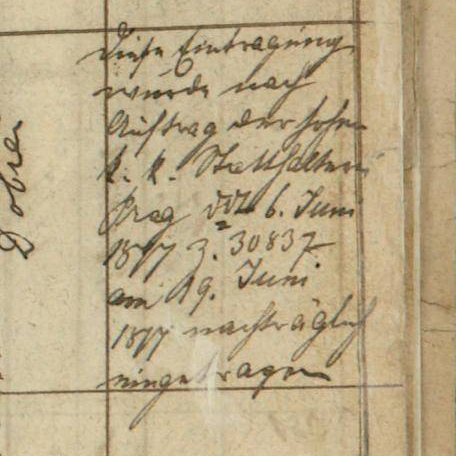 Diese Eintragung
wurde nach
Auftrag der hohen
k. k. Statthalterei
Prag ddto 6. Juni
1877 Z. 30837
am 19. Juni
1877 nachträglich
eingetragen